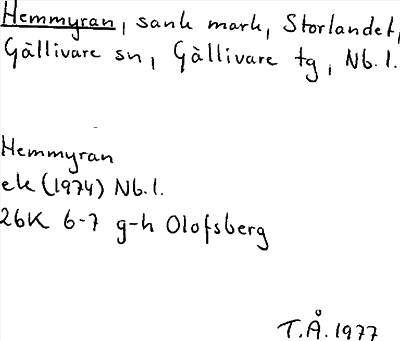 Hemmyran, sank mark, Storlandet,
Gällivare sn, Gällivare tg, Nb.l.
Hemmyran
ek (1974) Nb.l.
26K 6-7 g-h Olofsberg
T.Å. 1977